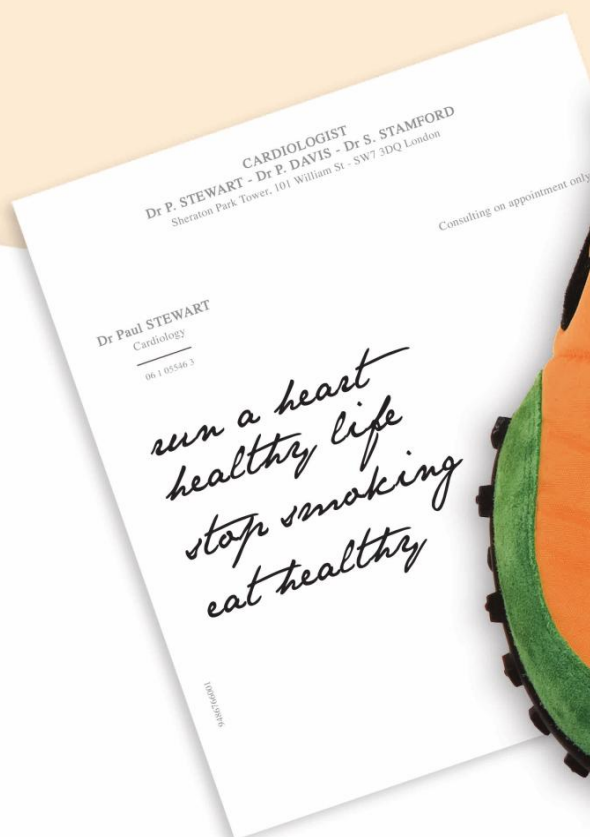 CARDIOLOGIST
Dr P. STEWART - Dr P. DAVIS - Dr S. STAMFORD
Sheraton Park Tower, 101 William St - SW7 3DQ London
Consulting on appointment only
Dr Paul STEWART
Cardiology
06 1 05546 3
run a heart
healthy life
stop smoking
eat healthy
9486766001